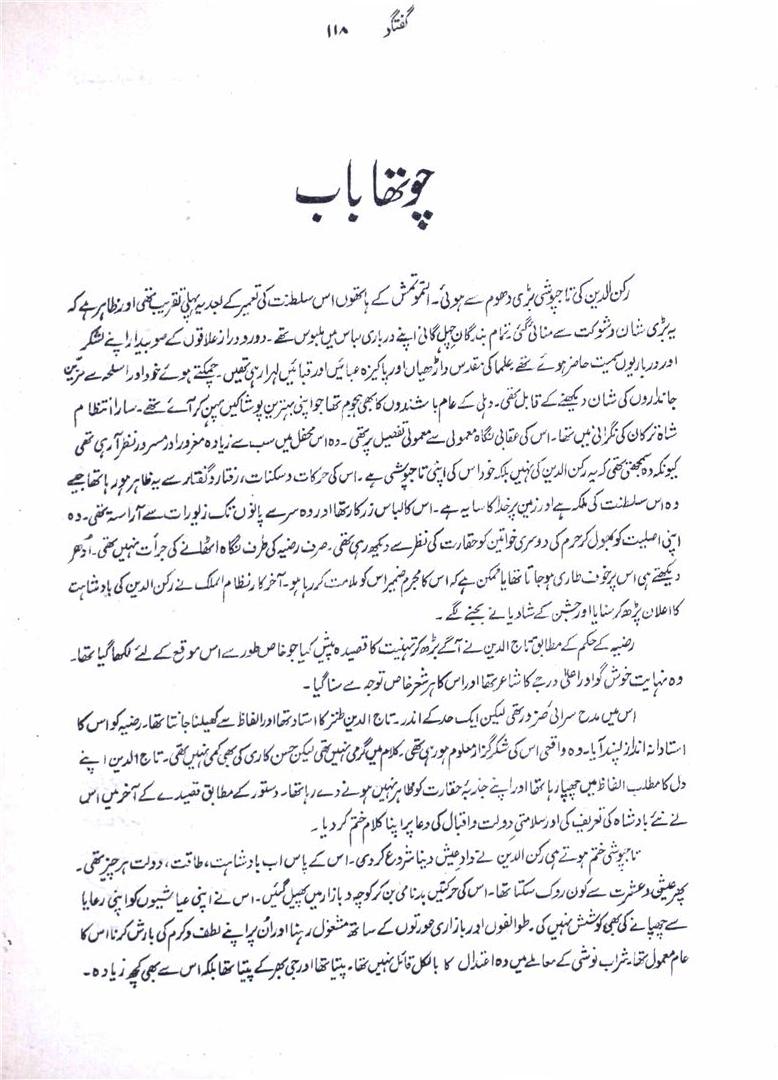 گفتگو ۱۱۸
چوتھا باب
رکن الدین کی تاجپوشی بڑی دھوم سے ہوئی۔ التوتمش کے ہاتھوں اس سلطنت کی تعمیر کے بعد یہ پہلی تقریب تھی اور ظاہر ہے کہ
یہ بڑی شان و شوکت سے منائی گئی۔ تمام بندگانِ چہل گانی اپنے درباری لباس میں ملبوس تھے۔ دور و دراز علاقوں کے صوبیدار اپنے لشکر
اور درباریوں سمیت حاضر ہوئے تھے۔ علما کی مقدس داڑھیاں اور پاکیزہ عبائیں اور قبائیں لہرا رہی تھیں۔ چمکتے ہوئے خود اور اسلحہ سے مزین
جانداروں کی شان دیکھنے کے قابل تھی۔ دہلی کے عام باشندوں کا بھی ہجوم تھا جو اپنی بہترین پوشاکیں پہن کر آئے تھے۔ سارا انتظام
شاہ ترکان کی نگرانی میں تھا۔ اس کی عقابی نگاہ معمولی سے معمولی تفصیل پر تھی۔ وہ اس محفل میں سب سے زیادہ مغرور اور مسرور نظر آ رہی تھی
کیونکہ وہ سمجھتی تھی کہ یہ رکن الدین کی نہیں بلکہ خود اس کی اپنی تاجپوشی ہے۔ اس کی حرکات و سکنات، رفتار و گفتار سے یہ ظاہر ہو رہا تھا جیسے
وہ اس سلطنت کی ملکہ ہے اور زمین پر خدا کا سایہ ہے۔ اس کا لباس زرکار تھا اور وہ سر سے پاؤں تک زیورات سے آراستہ تھی۔ وہ
اپنی اصلیت کو بھول کر حرم کی دوسری خواتین کو حقارت کی نظر سے دیکھ رہی تھی۔ صرف رضیہ کی طرف نگاہ اٹھانے کی جرأت نہیں تھی۔ اُدھر
دیکھتے ہی اس پر خوف طاری ہو جاتا تھا یا ممکن ہے کہ اس کا مجرم ضمیر اس کو ملامت کر رہا ہو۔ آخر کار نظام الملک نے رکن الدین کی بادشاہت
کا اعلان پڑھ کر سنایا اور جشن کے شادیانے بجنے لگے۔
رضیہ کے حکم کے مطابق تاج الدین نے آگے بڑھ کر تہنیت کا قصیدہ پیش کیا جو خاص طور سے اس موقع کے لئے لکھا گیا تھا۔
وہ نہایت خوش گو اور اعلیٰ درجے کا شاعر تھا اور اس کا ہر شعر خاص توجہ سے سنا گیا۔
اس میں مدح سرائی ضرور تھی لیکن ایک حد کے اندر۔ تاج الدین طنز کا استاد تھا اور الفاظ سے کھیلنا جانتا تھا۔ رضیہ کو اس کا
استادانہ انداز پسند آیا۔ وہ واقعی اس کی شکر گزار معلوم ہو رہی تھی۔ کلام میں گرمی نہیں تھی لیکن حسن کاری کی بھی کمی نہیں تھی۔ تاج الدین اپنے
دل کا مطلب الفاظ میں چھپا رہا تھا اور اپنے جذبۂ حقارت کو ظاہر نہیں ہونے دے رہا تھا۔ دستور کے مطابق قصیدے کے آخر میں اس
نے نئے بادشاہ کی تعریف کی اور سلامتیِ دولت و اقبال کی دعا پر اپنا کلام ختم کر دیا۔
تاجپوشی ختم ہوتے ہی رکن الدین نے دادِ عیش دینا شروع کر دی۔ اس کے پاس اب بادشاہت، طاقت، دولت ہر چیز تھی۔
پھر عیش و عشرت سے کون روک سکتا تھا۔ اس کی حرکتیں بدنامی بن کر کوچہ و بازار میں پھیل گئیں۔ اس نے اپنی عیاشیوں کو اپنی رعایا
سے چھپانے کی بھی کوشش نہیں کی۔ طوائفوں اور بازاری عورتوں کے ساتھ مشغول رہنا اور اُن پر اپنے لطف و کرم کی بارش کرنا اس کا
عام معمول تھا۔ شراب نوشی کے معاملے میں وہ اعتدال کا بالکل قائل نہیں تھا۔ پیتا تھا اور جی بھر کے پیتا تھا بلکہ اس سے بھی کچھ زیادہ۔